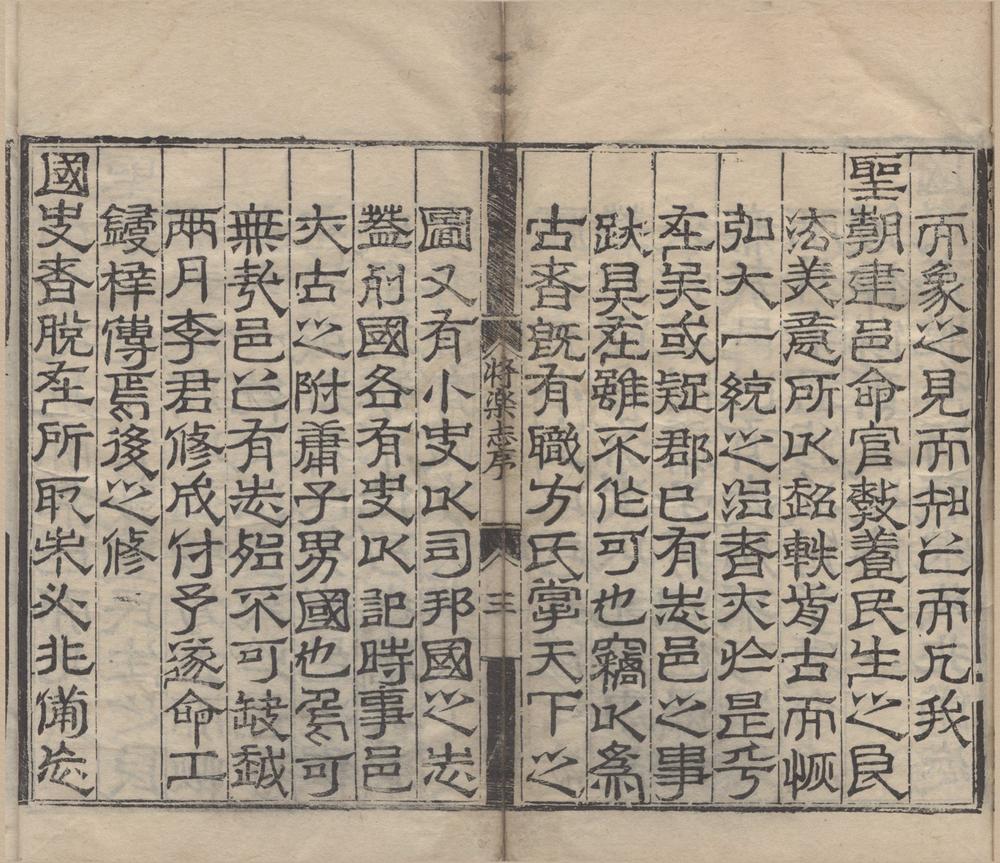 而象之見而知之而凡我
聖朝建邑命官敷養民生之良
法美意所以超軼前古而恢
弘大一統之治者亦於是乎
在矣或疑郡已有志邑之事
跡具在雖不作可也竊以為
古者既有職方氏掌天下之
将樂志序 三
圖又有小史以司邦國之志
蓋列國各有史以記時事邑
亦古之附庸子男國也焉可
無邑之有志殆不可缺哉
兩月李君修成付予遂命工
鋟梓傳焉後之修
國史者脫在所取未必非備忘